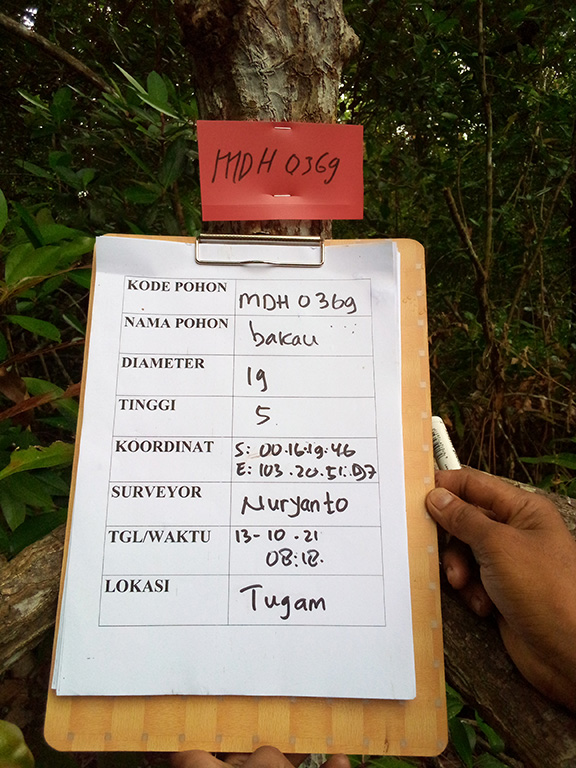 MDH 0369
KODE POHON MDH 0369
NAMA POHON bakau
DIAMETER 19
TINGGI 5
KOORDINAT S: 00.16.19.46
E: 103.20.51.07
SURVEYOR Nuryanto
TGL/WAKTU 13-10.21
08:18.
LOKASI Tugam